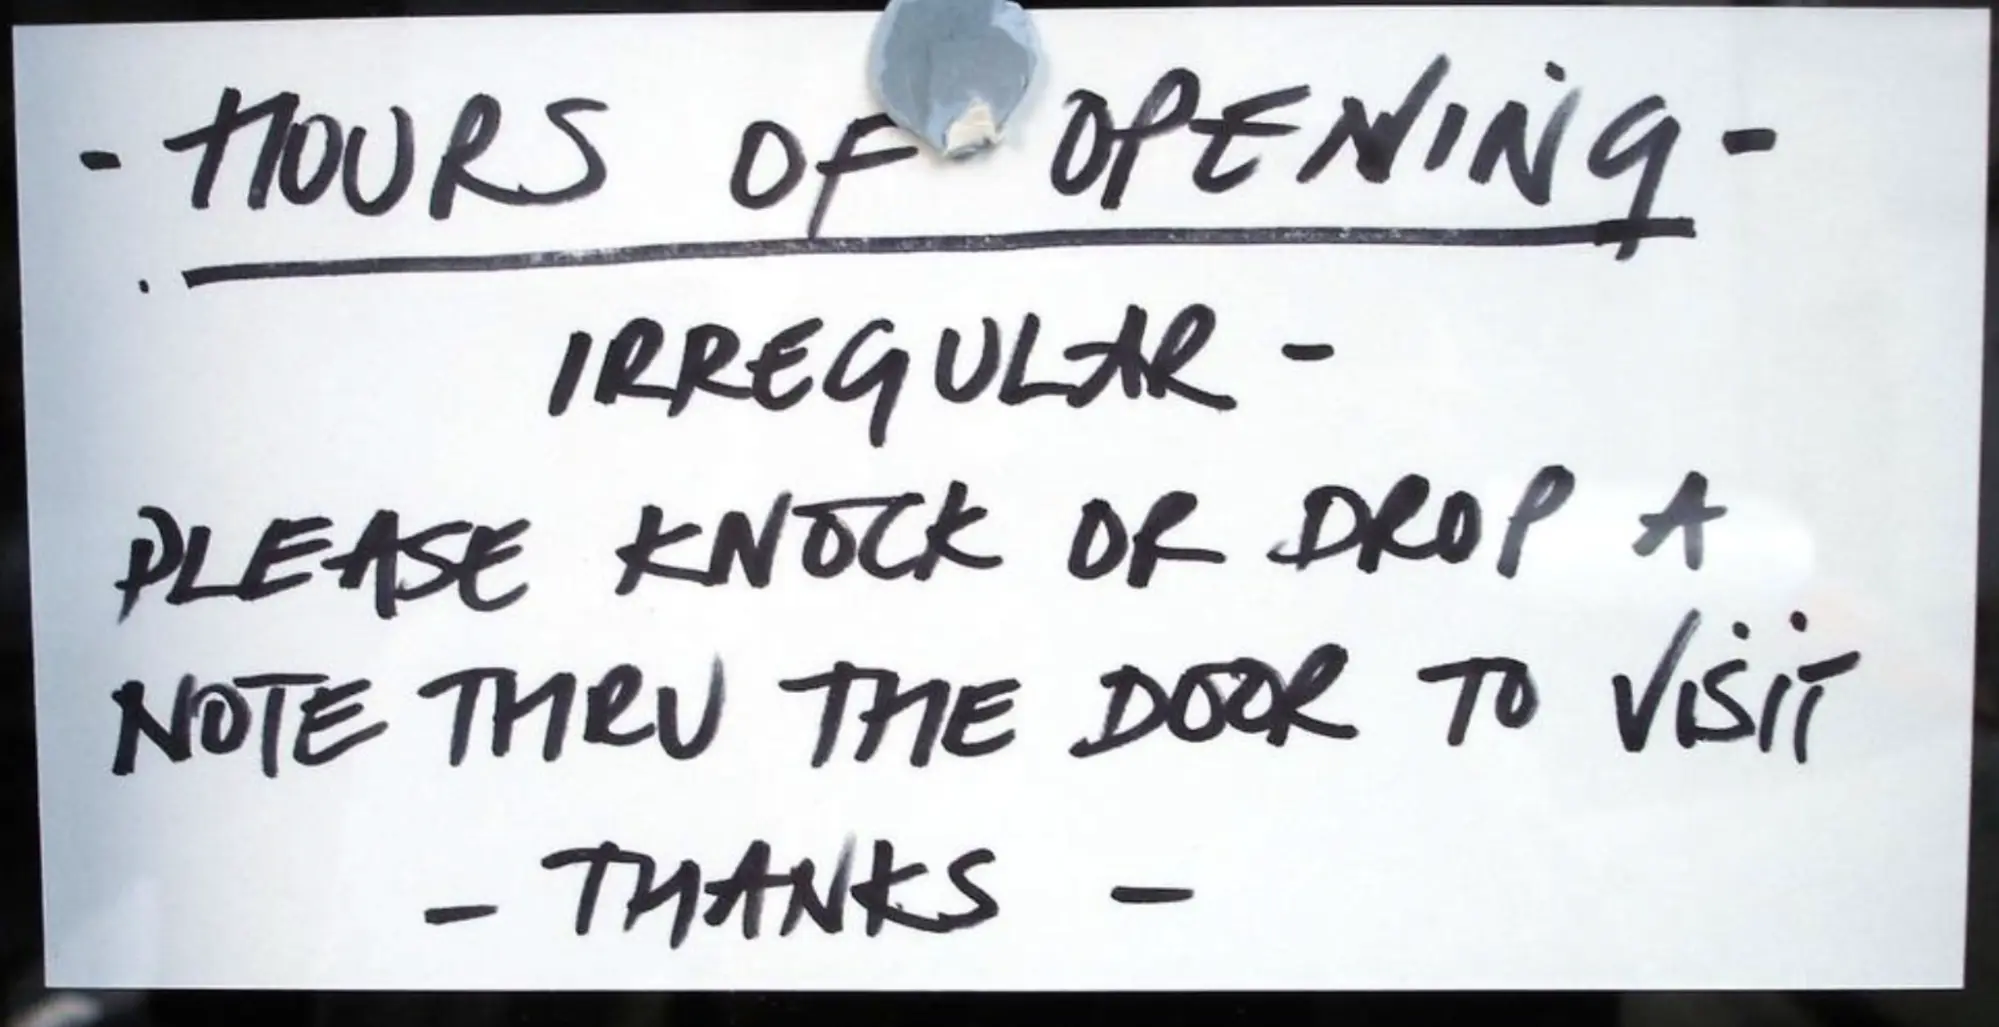 - HOURS OF OPENING -
IRREGULAR -
PLEASE KNOCK OR DROP A
NOTE THRU THE DOOR TO VISIT
- THANKS -